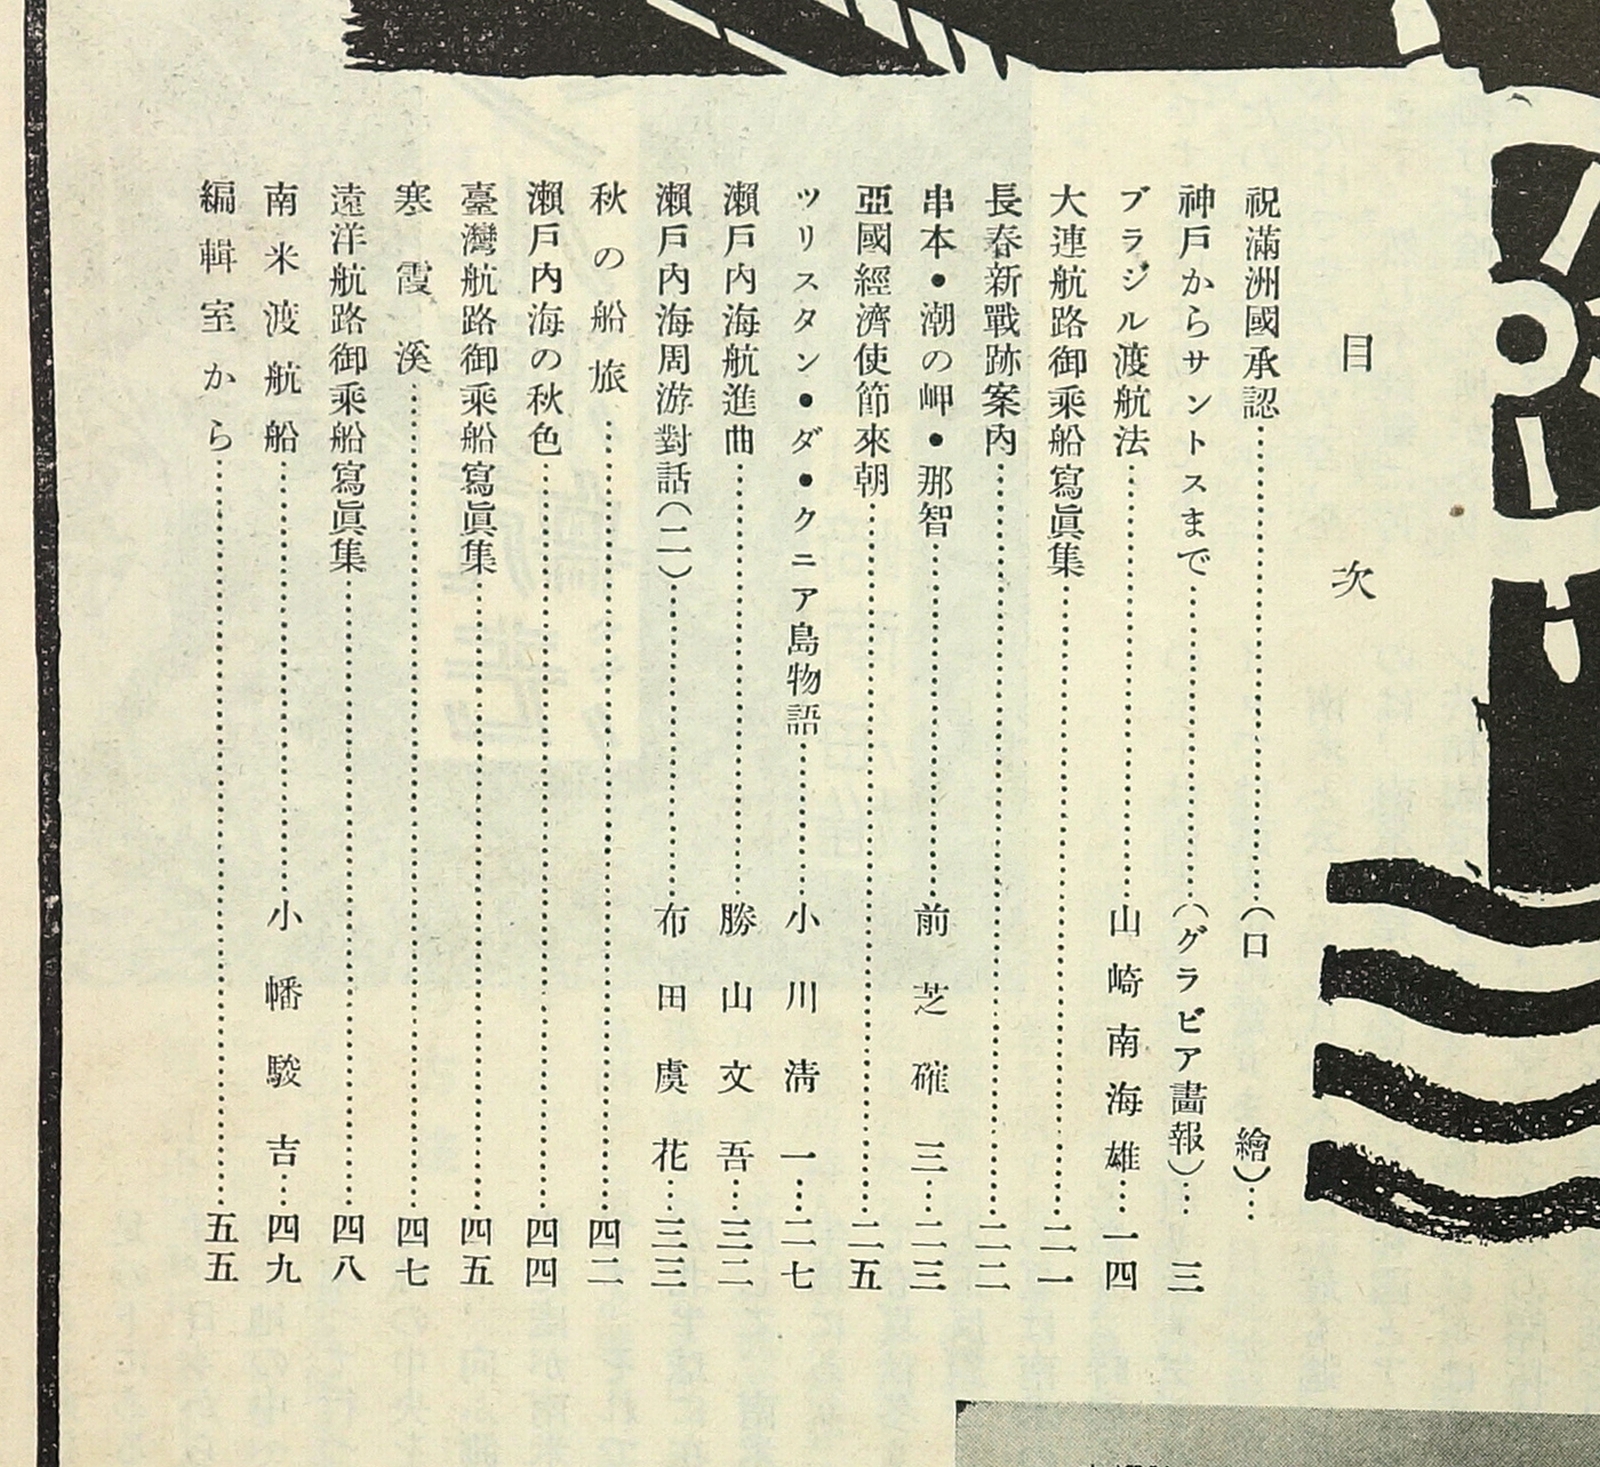 目次
祝滿洲國承認…………（口繪）…
神戸からサントスまで…………（グラビア畫報）…三
ブラジル渡航法…………山崎南海雄…一四
大連航路御乘船寫眞集…………二一
長春新戰跡案內…………二二
串本•潮の岬•那智…………前芝確三…二三
亞國經濟使節來朝…………二五
ツリスタン•ダ•クニア島物語…………小川淸一…二七
瀨戸內海航進曲…………勝山文吾…三二
瀨戸內海周游對話（二）…………布田虞花…三三
秋の船旅…………四二
瀨戸內海の秋色…………四四
臺灣航路御乘船寫眞集…………四五
寒霞溪…………四七
遠洋航路御乘船寫眞集…………四八
南米渡航船…………小幡駿吉…四九
編輯室から…………五五